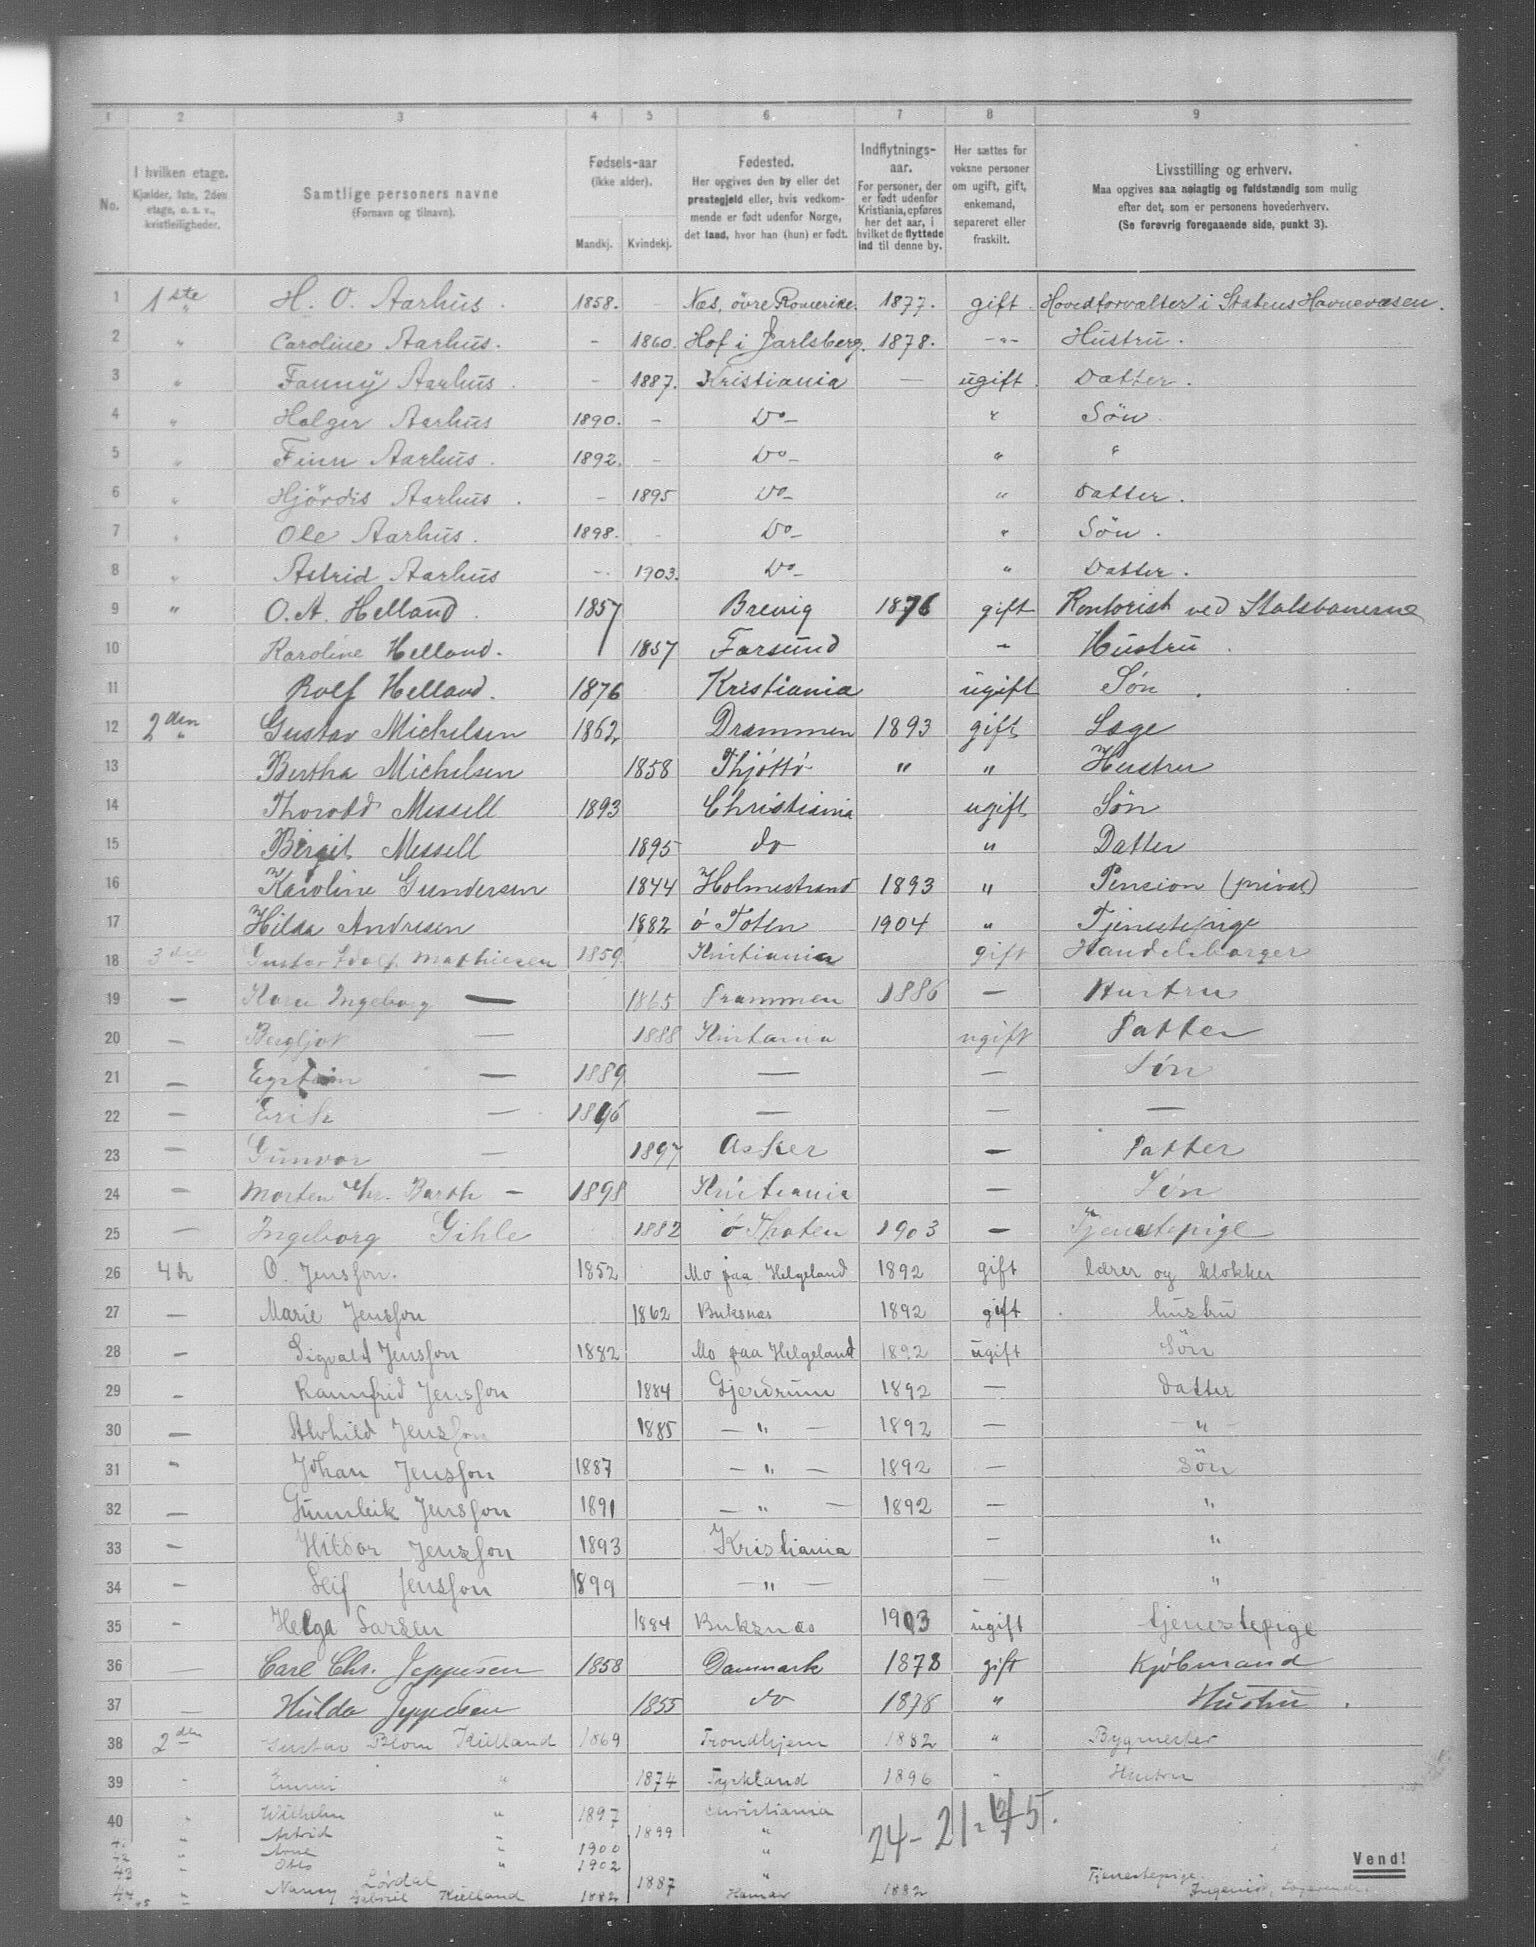 1 2 3 4 5 6 7 8 9
No.
I hvilken etage.
Kjælder, 1ste, 2den etage, o. s. v., kvistleiligheder.
Samtlige personers navne
(Fornavn og tilnavn).
Fødsels-aar
(ikke alder).
Mandkj. Kvindekj.
Fødested.
Her opgives den by eller det prestegjeld eller, hvis vedkommende er født udenfor Norge, det land, hvor han (hun) er født.
Indflytnings-aar.
For personer, der er født udenfor Kristiania, opføres her det aar, i hvilket de flyttede ind til denne by.
Her sættes for voksne personer om ugift, gift, enkemand, separeret eller fraskilt.
Livsstilling og erhverv.
Maa opgives saa nøiagtig og fuldstændig som mulig efter det, som er personens hovederhverv.
(Se forøvrig foregaaende side, punkt 3).
1 1ste " H. O. Aarhus. 1858. - Næs, övre Romerike. 1877. gift. Hovedforvalter i Statens Havnevæsen.
2 " Caroline Aarhus. - 1860. Hof i Jarlsberg. 1878. -"- Hustru.
3 " Fanny Aarhus. - 1887. Kristiania — ugift. Datter.
4 " Holger Aarhus 1890. - Do- " Sön.
5 " Finn Aarhus. 1892. - Do- " "
6 " Hjördis Aarhus. - 1895 Do- " Datter.
7 " Ole Aarhus. 1898. - Do- " Sön.
8 " Astrid Aarhus - 1903. Do- " Datter.
9 " O. A. Helland. 1857 Brevig 1876 gift Kontorist ved Statsbanerne
10 Karoline Helland. 1857 Farsund - Hustru.
11 Rolf Helland. 1876 Kristiania ugift Søn.
12 2den " Gustav Michelsen 1862 Drammen 1893 gift Læge
13 Bertha Michelsen 1858 Thjøttø " " Hustru
14 Thorodd Messell 1893 Christiania ugift Søn
15 Birgit Messell 1895 do " Datter
16 Karoline Gundersen 1844 Holmestrand 1893 " Pension (privat)
17 Hilda Andresen 1882 ø Toten 1904 " Tjenestepige
18 3die Gustav Adolf Mathiesen 1859 Kristiania gift Handelsborger
19 — Kara Ingeborg — 1865 Drammen 1886 — Hustru
20 — Bergljot — 1888 Kristiania ugift Datter
21 — Eystein — 1889 — — Søn
22 — Erik — 1896 — — —
23 — Gunvor — 1897 Asker — Datter
24 — Morten Chr. Barth — 1898 Kristiania — Søn
25 — Ingeborg Gihle 1882 ø Thoten 1903 — Tjenestepige
26 4de O. Jensson. 1852 Mo paa Helgeland 1892 gift lærer og klokker
27 — Marie Jensson 1862 Buksnæs 1892 gift hustru
28 — Sigvald Jensson 1882 Mo paa Helgeland 1892 ugift Sön
29 — Rannfrid Jensson 1884 Gjerdrum 1892 — datter
30 — Alvhild Jensson 1885 — " — 1892 — — " —
31 — Johan Jensson 1887 — " — 1892 — Sön
32 — Gunnleik Jensson 1891 — " — 1892 — "
33 — Hildor Jensson 1893 Kristiania — "
34 — Leif Jensson 1899 — " — — "
35 — Helga Larsen 1884 Buksnæs 1903 ugift tjenestepige
36 — Carl Chr. Jeppesen 1858 Danmark 1878 gift Kjøbmand
37 — Hulda Jeppesen 1855 do 1878 " Hustru.
38 2den Gustav Blom Kielland 1869 Trondhjem 1882 " Bygmester
39 " Emmi " 1874 Tyskland 1896 " Hustru
40 " Wilhelm " 1897 Christiania
41 " Astrid " 1899 "
42 " Arne " 1900 "
43 " Otto " 1902 "
44 " Nancy Lördal 1887 Tjenestepige
45 " Gabriel Kielland 1882 Hamar 1882 Ingeniør,
24 - 21 = 45.
Vend!